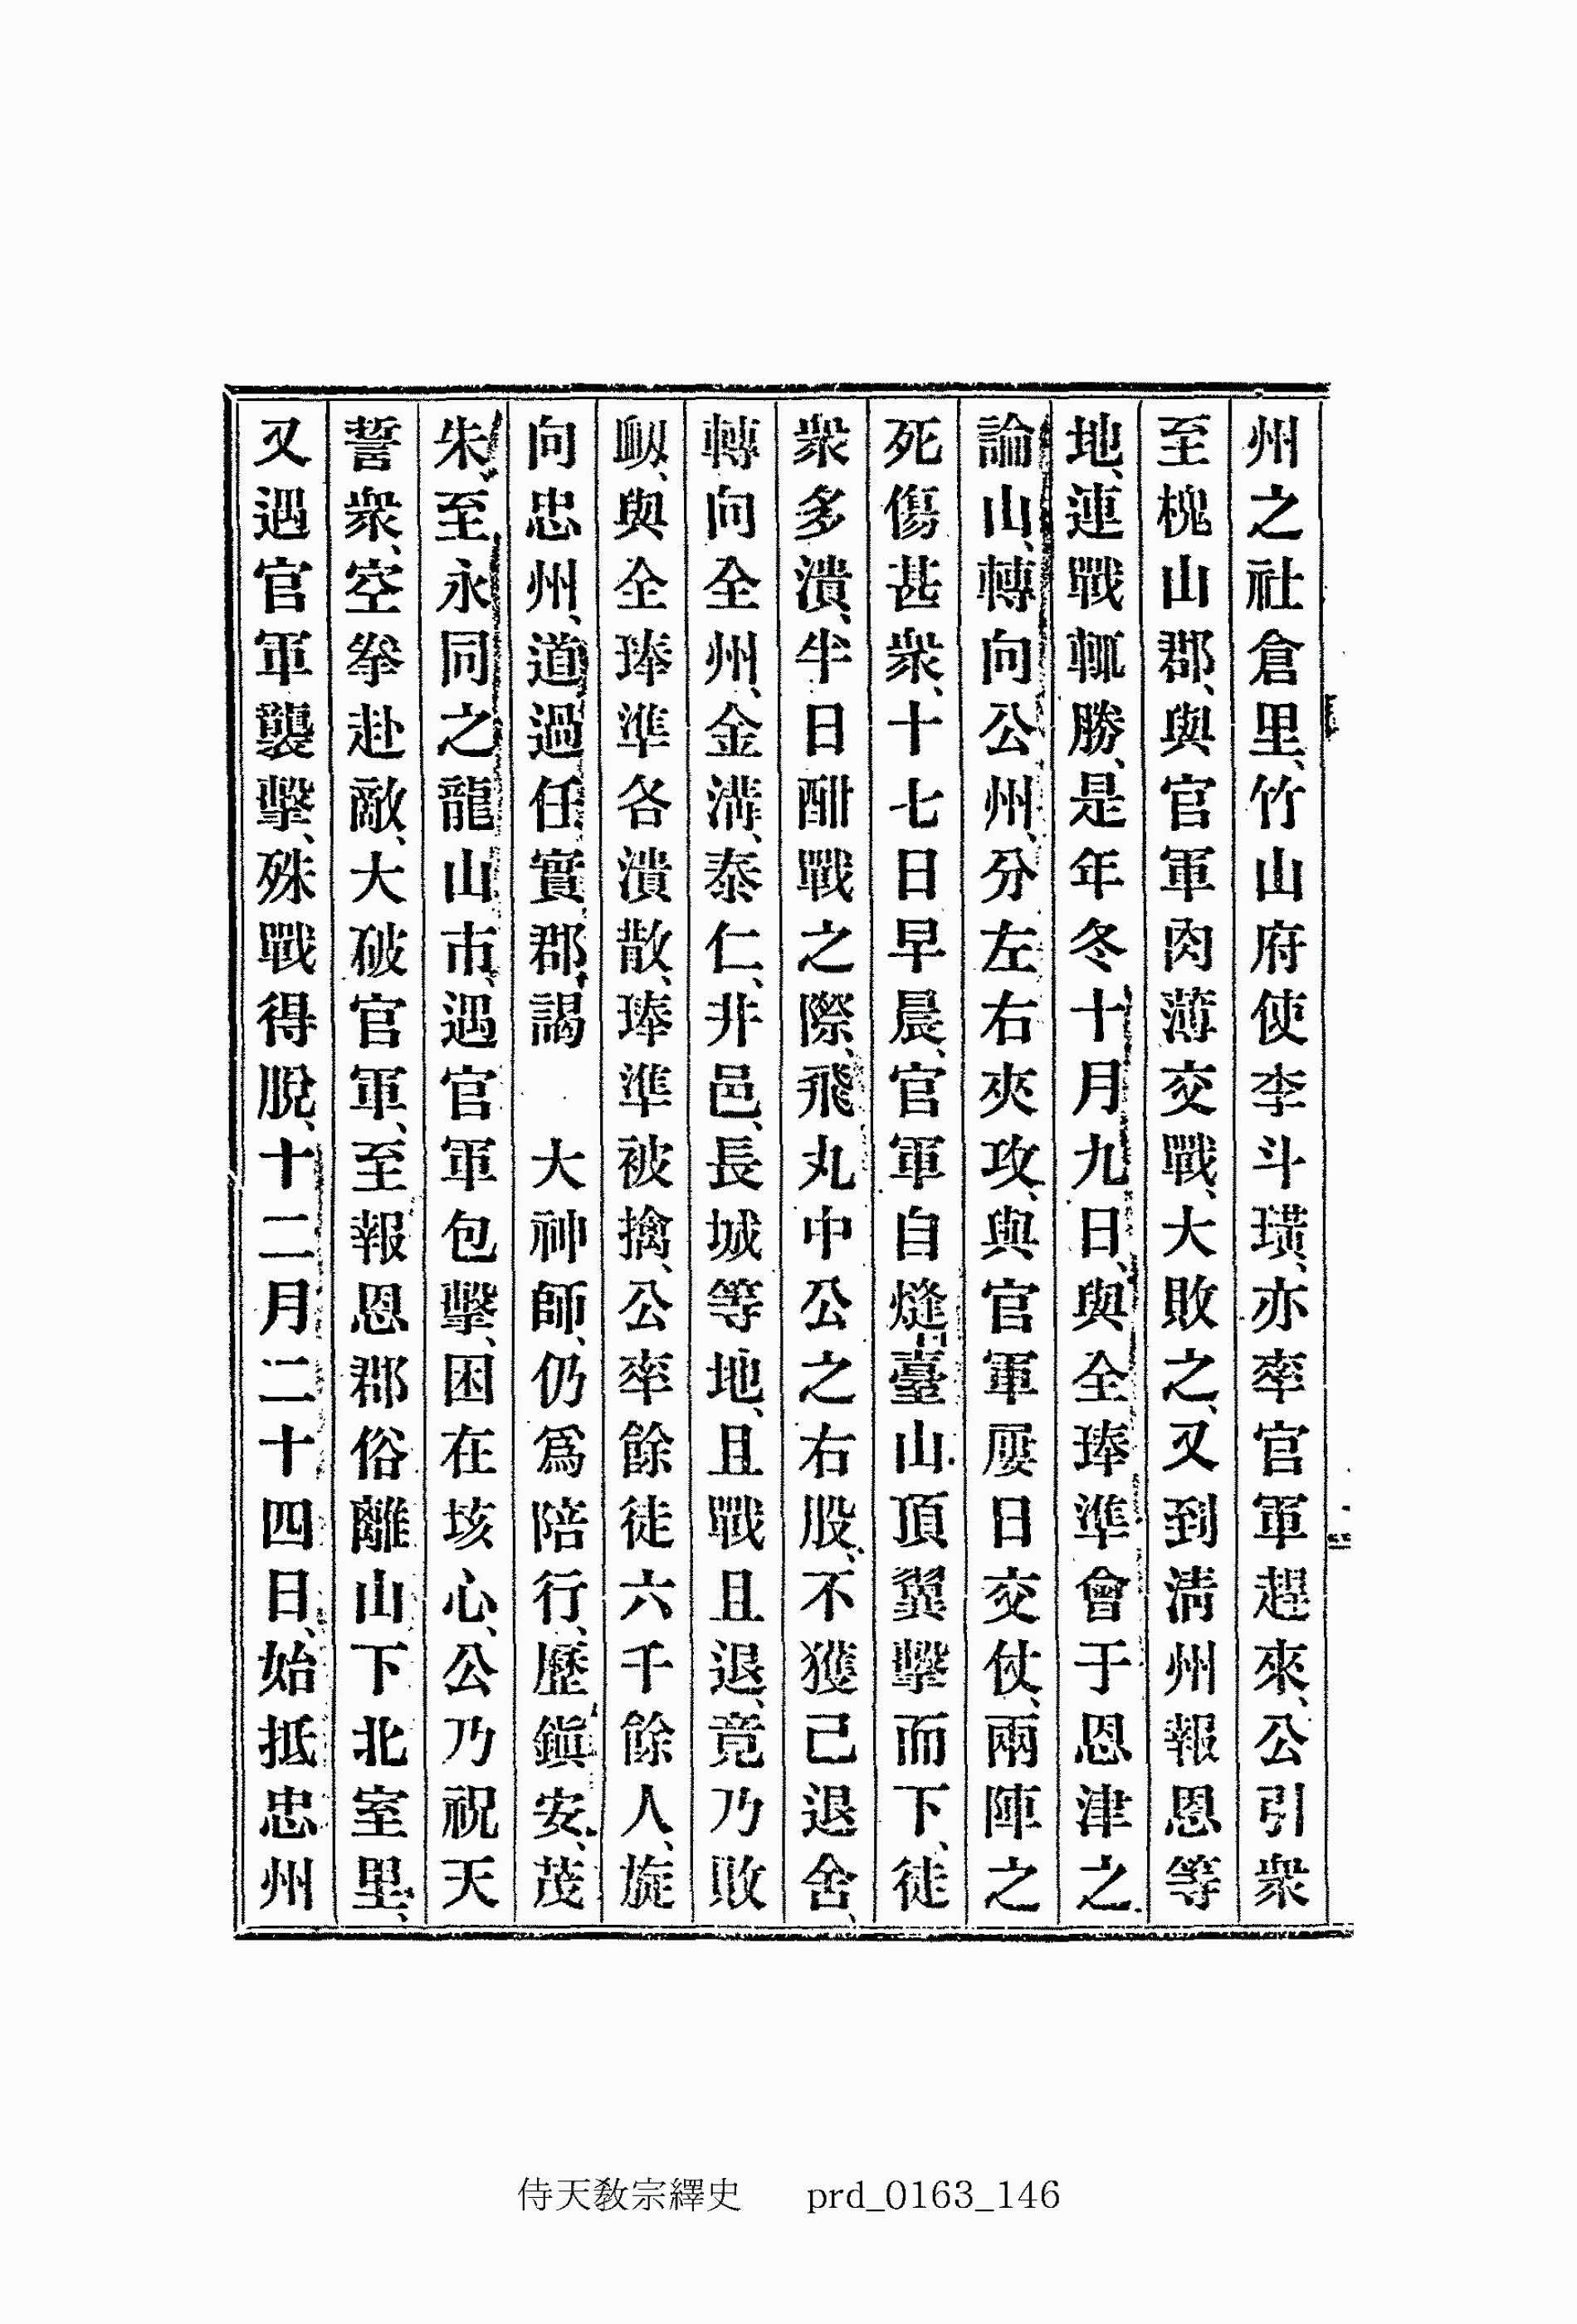 州之社倉里、竹山府使李斗璜、亦率官軍趕來、公引衆
至槐山郡、與官軍肉薄交戰、大敗之、又到淸州報恩等
地、連戰輒勝、是年冬十月九日、與全琫準會于恩津之
論山、轉向公州、分左右夾攻、與官軍屢日交仗、兩陣之
死傷甚衆、十七日早晨、官軍自燧臺山頂翼擊而下、徒
衆多潰、半日酣戰之際、飛丸中公之右股、不獲已退舍、
轉向全州、金溝、泰仁、井邑、長城等地、且戰且退、竟乃敗
衄、與全琫準各潰散、琫準被擒、公率餘徒六千餘人、旋
向忠州、道過任實郡、謁 大神師、仍爲陪行、歷鎭安、茂
朱、至永同之龍山市、遇官軍包擊、困在垓心、公乃祝天
誓衆、空拳赴敵、大破官軍、至報恩郡俗離山下北室里、
又遇官軍襲擊、殊戰得脫、十二月二十四日、始抵忠州
侍天敎宗繹史 prd_0163_146